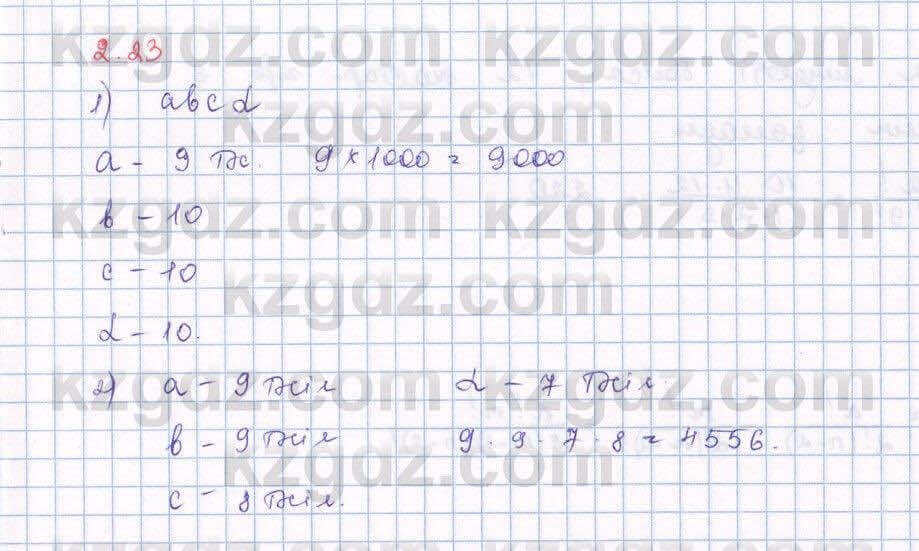 2.23
1) abcd
a - 9 тәс. 9 × 1000 = 9000
b - 10
c - 10
d - 10.
2) a - 9 тәсіл d - 7 тәсіл.
b - 9 тәсіл 9 · 9 · 7 · 8 = 4556.
c - 8 тәсіл.
kzgdz.com kzgdz.com
kzgdz.com
kzgdz.com kzgdz.com
kzgdz.com
kzgdz.com kzgdz.com
kzgdz.com